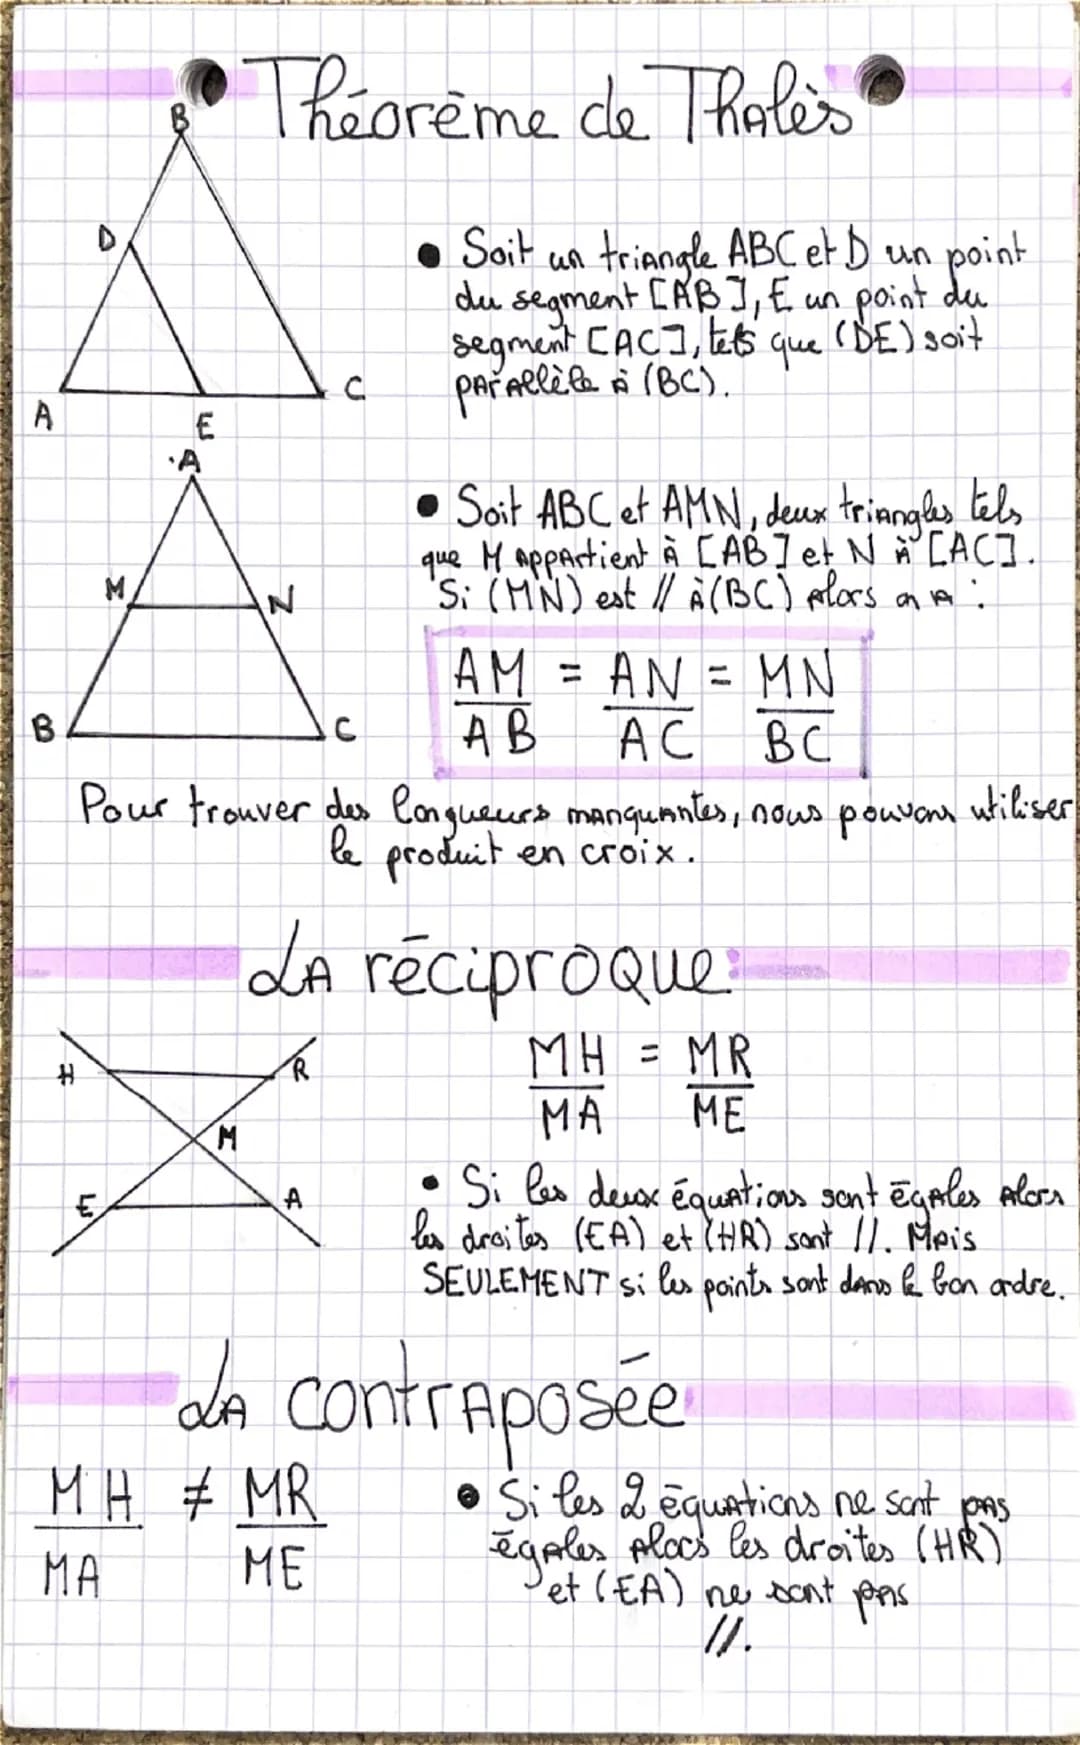 Théorème de Thalès
B
D
A
E
C
• Soit un triangle ABC et D un point
du segment [AB], E un point du
segment [AC], tels que (DE) soit
parallèle à (BC).
.A
M
N
B
C
• Soit ABC et AMN, deux triangles tels
que M appartient à [AB] et N à [AC].
Si (MN) est // à (BC) alors on a :
AM = AN = MN
AB AC BC
Pour trouver des longueurs manquantes, nous pouvons utiliser
le produit en croix.
La réciproque:
H
R
M
E
A
MH = MR
MA ME
• Si les deux équations sont égales alors
les droites (EA) et (HR) sont //. Mais
SEULEMENT si les points sont dans le bon ordre.
La contraposée
MH ≠ MR
MA ME
• Si les 2 équations ne sont pas
égales alors les droites (HR)
et (EA) ne sont pas
//.